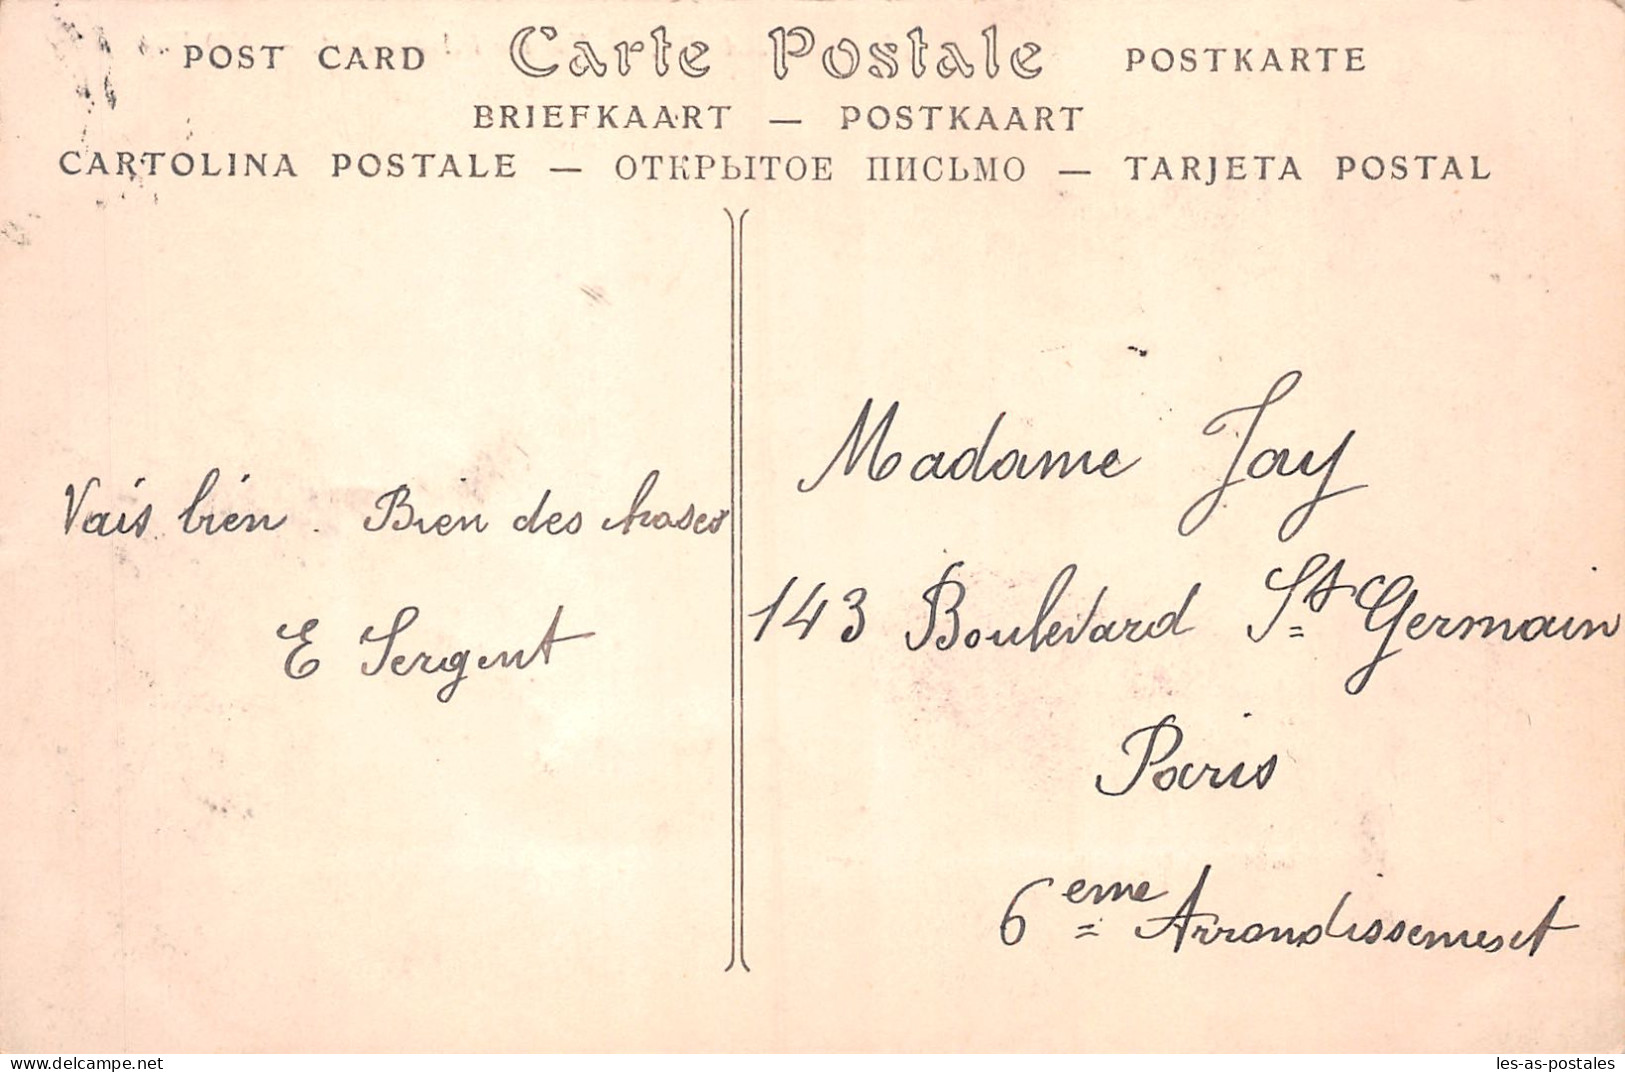 POST CARD Carte Postale POSTKARTE
BRIEFKAART — POSTKAART
CARTOLINA POSTALE — ОТКРЫТОЕ ПИСЬМО — TARJETA POSTAL
Vais bien. Bien des choses
E Sergent
Madame Jay
143 Boulevard St Germain
Paris
6eme Arrondissement
delcampe.net
les-as-postales